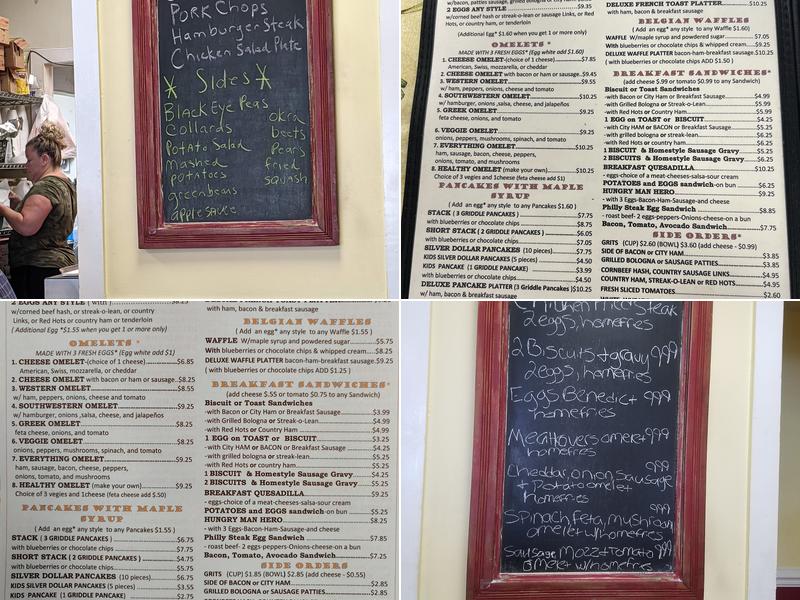 Pork Chops
Hamburger Steak
Chicken Salad Plate
* Sides *
Black Eye Peas
Collards
Potato Salad
Mashed
Potatoes
greenbeans
apple sauce
okra
beets
Pears
fried
squash
2 EGGS ANY STYLE ........$9.35
w/corned beef hash or streak-o-lean or sausage Links, or
Red Hots or country ham or tenderloin
(Additional Egg* $1.60 when you get 1 or more only)
OMELETS *
MADE WITH 3 FRESH EGGS* (Egg white add $1.60)
1. CHEESE OMELET-(choice of 1 cheese)........$7.85
American, Swiss, mozzarella, or cheddar
2. CHEESE OMELET with bacon or ham or sausage..$9.45
3. WESTERN OMELET........$9.55
w/ ham, peppers, onions, cheese and tomato
4. SOUTHWESTERN OMELET........$10.25
w/ hamburger, onions ,salsa, cheese, and jalapeños
5. GREEK OMELET........$9.25
feta cheese, onions, and tomato
6. VEGGIE OMELET........$9.25
onions, peppers, mushrooms, spinach, and tomato
7. EVERYTHING OMELET........$10.25
ham, sausage, bacon, cheese, peppers,
onions, tomato, and mushrooms
8. HEALTHY OMELET (make your own)........$10.25
Choice of 3 vegies and 1cheese (feta cheese add $1)
PANCAKES WITH MAPLE
SYRUP
( Add an egg* any style to any Pancakes $1.60 )
STACK ( 3 GRIDDLE PANCAKES )........$7.75
with blueberries or chocolate chips........$8.75
SHORT STACK ( 2 GRIDDLE PANCAKES )........$6.05
with blueberries or chocolate chips........$7.05
SILVER DOLLAR PANCAKES (10 pieces)........$7.75
KIDS SILVER DOLLAR PANCAKES (5 pieces)........$4.50
KIDS PANCAKE (1 GRIDDLE PANCAKE)........$3.99
with blueberries or chocolate chips........$4.50
DELUXE PANCAKE PLATTER (3 Griddle Pancakes)$10.25
w/ ham, bacon & breakfast sausage
DELUXE FRENCH TOAST PLATTER........$10.25
with ham, bacon & breakfast sausage
BELGIAN WAFFLES
( Add an egg* any style to any Waffle $1.60)
WAFFLE W/maple syrup and powdered sugar........$7.05
With blueberries or chocolate chips & whipped cream..$9.25
DELUXE WAFFLE PLATTER bacon-ham-breakfast sausage.$10.25
( with blueberries or chocolate chips ADD $1.50 )
BREAKFAST SANDWICHES*
(add cheese $.99 or tomato $0.99 to any Sandwich)
Biscuit or Toast Sandwiches
-with Bacon or City Ham or Breakfast Sausage........$4.99
-with Grilled Bologna or Streak-o-Lean........$5.99
-with Red Hots or Country Ham........$5.99
1 EGG on TOAST or BISCUIT........$4.25
-with City HAM or BACON or Breakfast Sausage........$5.25
-with grilled bologna or streak-lean........$6.25
-with Red Hots or country ham........$6.25
1 BISCUIT & Homestyle Sausage Gravy........$5.25
2 BISCUITS & Homestyle Sausage Gravy........$6.25
BREAKFAST QUESADILLA........$10.25
- eggs-choice of a meat-cheeses-salsa-sour cream
POTATOES and EGGS sandwich-on bun........$6.25
HUNGRY MAN HERO........$9.25
-with 3 Eggs-Bacon-Ham-Sausage-and cheese
Philly Steak Egg Sandwich........$8.85
- roast beef- 2 eggs-peppers-Onions-cheese-on a bun
Bacon, Tomato, Avocado Sandwich........$7.75
SIDE ORDERS*
GRITS (CUP) $2.60 (BOWL) $3.60 (add cheese - $0.99)
SIDE OF BACON or CITY HAM........$3.85
GRILLED BOLOGNA or SAUSAGE PATTIES........$3.85
CORNBEEF HASH, COUNTRY SAUSAGE LINKS........$4.95
COUNTRY HAM, STREAK-O-LEAN or RED HOTS........$4.95
FRESH SLICED TOMATOES........$2.60
2 EGGS ANY STYLE ( with )........$8.25
w/corned beef hash, or streak-o-lean, or country
Links, or Red Hots, or country ham or tenderloin
( Additional Egg* $1.55 when you get 1 or more only)
OMELETS *
MADE WITH 3 FRESH EGGS* (Egg white add $1)
1. CHEESE OMELET-(choice of 1 cheese)........$6.85
American, Swiss, mozzarella, or cheddar
2. CHEESE OMELET with bacon or ham or sausage..$8.25
3. WESTERN OMELET........$8.55
w/ ham, peppers, onions, cheese and tomato
4. SOUTHWESTERN OMELET........$9.25
w/ hamburger, onions ,salsa, cheese, and jalapeños
5. GREEK OMELET........$8.25
feta cheese, onions, and tomato
6. VEGGIE OMELET........$8.25
onions, peppers, mushrooms, spinach, and tomato
7. EVERYTHING OMELET........$9.25
ham, sausage, bacon, cheese, peppers,
onions, tomato, and mushrooms
8. HEALTHY OMELET (make your own)........$9.25
Choice of 3 vegies and 1cheese (feta cheese add $.50)
PANCAKES WITH MAPLE
SYRUP
( Add an egg* any style to any Pancakes $1.55 )
STACK ( 3 GRIDDLE PANCAKES )........$6.75
with blueberries or chocolate chips........$7.75
SHORT STACK ( 2 GRIDDLE PANCAKES )........$4.75
with blueberries or chocolate chips........$5.75
SILVER DOLLAR PANCAKES (10 pieces)........$6.75
KIDS SILVER DOLLAR PANCAKES (5 pieces)........$3.55
KIDS PANCAKE (1 GRIDDLE PANCAKE)........$2.75
with ham, bacon & breakfast sausage
BELGIAN WAFFLES
( Add an egg* any style to any Waffle $1.55 )
WAFFLE W/maple syrup and powdered sugar........$5.75
With blueberries or chocolate chips & whipped cream....$8.25
DELUXE WAFFLE PLATTER bacon-ham-breakfast sausage.$9.25
( with blueberries or chocolate chips ADD $1.25 )
BREAKFAST SANDWICHES*
(add cheese $.55 or tomato $0.75 to any Sandwich)
Biscuit or Toast Sandwiches
-with Bacon or City Ham or Breakfast Sausage........$3.99
-with Grilled Bologna or Streak-o-Lean........$4.99
-with Red Hots or Country Ham........$4.99
1 EGG on TOAST or BISCUIT........$3.25
-with City HAM or BACON or Breakfast Sausage........$4.25
-with grilled bologna or streak-lean........$5.25
-with Red Hots or country ham........$5.25
1 BISCUIT & Homestyle Sausage Gravy........$4.25
2 BISCUITS & Homestyle Sausage Gravy........$5.25
BREAKFAST QUESADILLA........$9.25
- eggs-choice of a meat-cheeses-salsa-sour cream
POTATOES and EGGS sandwich-on bun........$5.25
HUNGRY MAN HERO........$8.25
- with 3 Eggs-Bacon-Ham-Sausage-and cheese
Philly Steak Egg Sandwich........$7.85
- roast beef- 2 eggs-peppers-Onions-cheese-on a bun
Bacon, Tomato, Avocado Sandwich........$7.25
SIDE ORDERS
GRITS (CUP) $1.85 (BOWL) $2.85 (add cheese - $0.55)
SIDE OF BACON or CITY HAM........$2.85
GRILLED BOLOGNA or SAUSAGE PATTIES........$2.85
Steak
2 eggs, homefries
2 Biscuits + gravy 9.99
2 eggs, homefries
Eggs Benedict 9.99
homefries
Meatlovers omelet 9.99
homefries
Cheddar, onion sausage 9.99
+ Potato omelet
homefries
Spinach, feta, mushroom 9.99
omelet w/homefries
Sausage Mozz + Tomato 9.99
omelet w/homefries